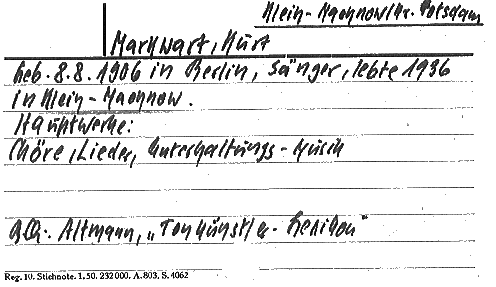 Klein-Machnow/Kr. Potsdam
Markwart, Kurt
Geb. 8.8.1906 in Berlin, Sänger, lebte 1936
in Klein-Machnow.
Hauptwerke:
Chöre, Lieder, Unterhaltungs-Musik
Altmann, „Tonkünstler-Lexikon"
Reg. 10. Stichnote. 1. 50. 232 000. A. 803. S. 4062